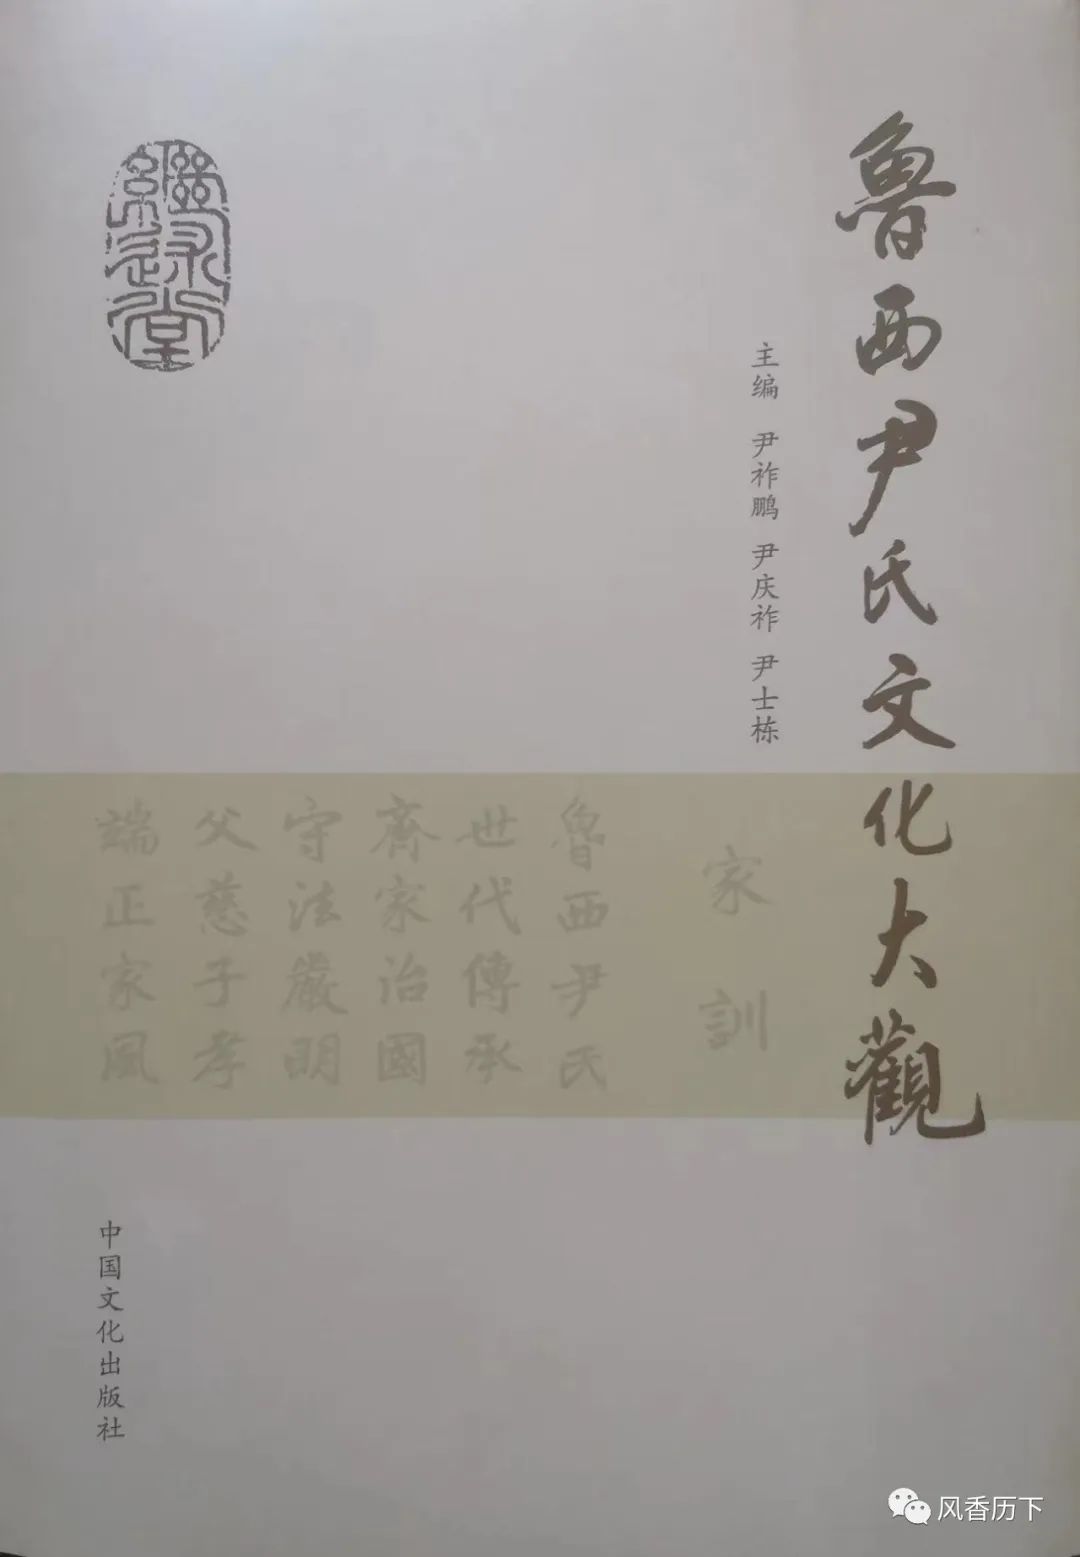 魯西尹氏文化大觀
主编 尹祚鹏 尹庆祚 尹士栋
家訓
魯西尹氏
世代傳承
齊家治國
守法嚴明
父慈子孝
端正家風
繼述堂
中国文化出版社
风香历下